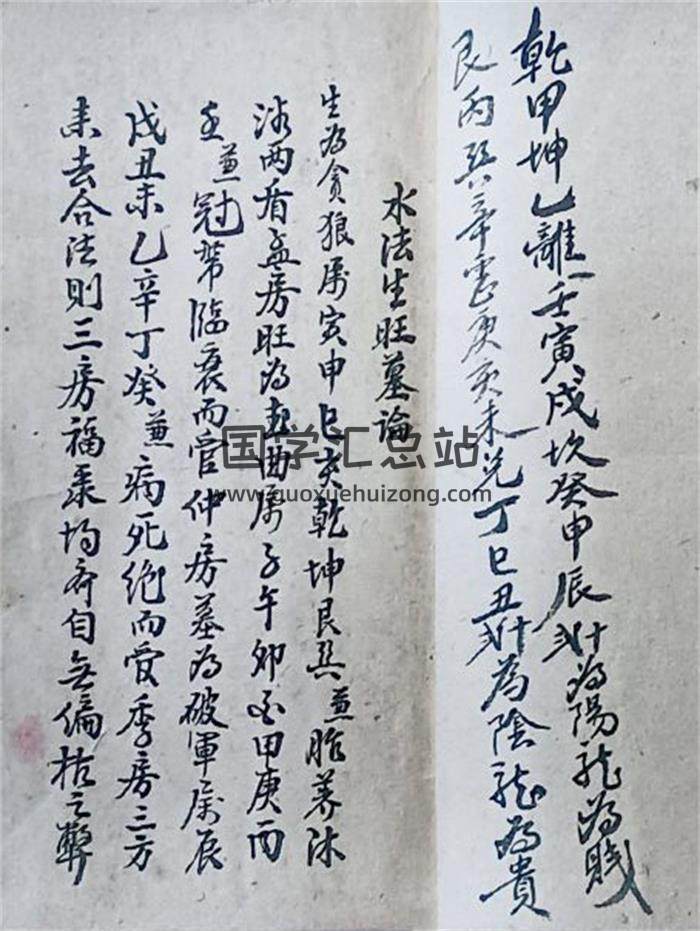 乾甲坤乙離壬寅戌坎癸申辰為陽龍為賤
艮丙巽辛震庚亥未兌丁巳丑為陰龍為貴
水法生旺墓論
生為貪狼属寅申巳亥乾坤艮巽兼胎养沐
浴而看孟房旺為武曲属子午卯酉甲庚丙
壬兼冠帶臨衰而管仲房墓為破軍属辰
戌丑未乙辛丁癸兼病死绝而管季房三方
来去合法則三房福均齐自無偏枯之弊
国学汇总站
www.guoxuehuizong.com